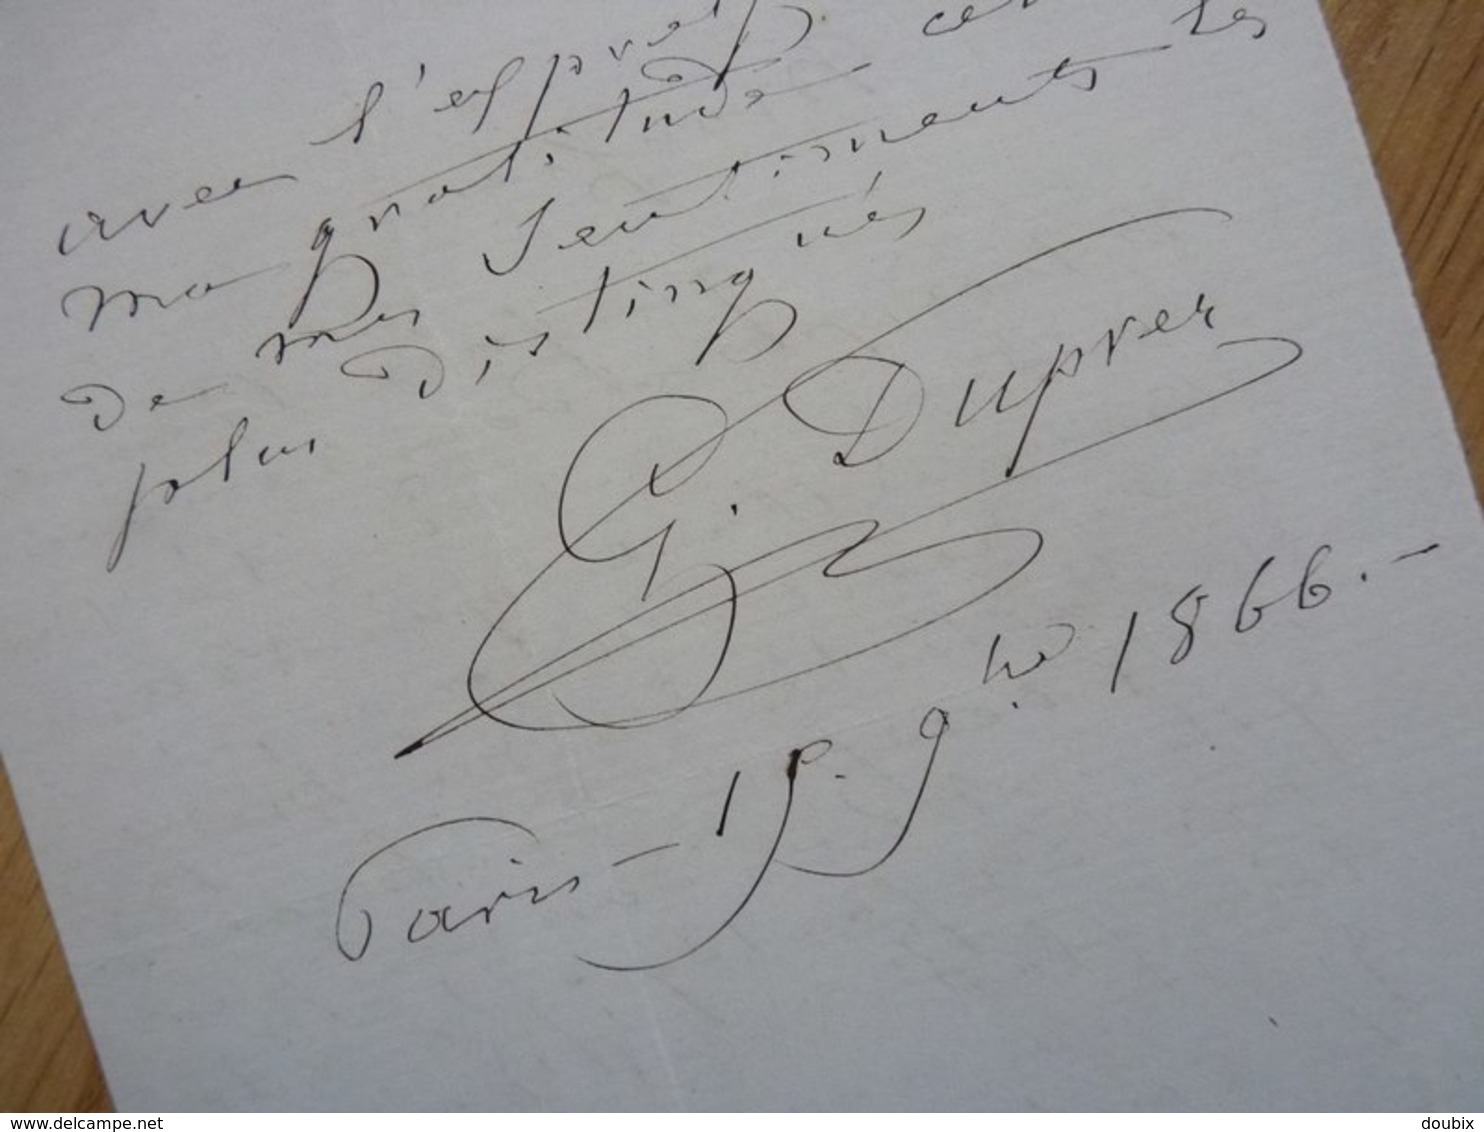 avec l'espres
ma gratitude cel
de mes sentiments les
plus distingués
G. Duprez
Paris - 15. 9.bre 1866. -
www.delcampe.net
doubix